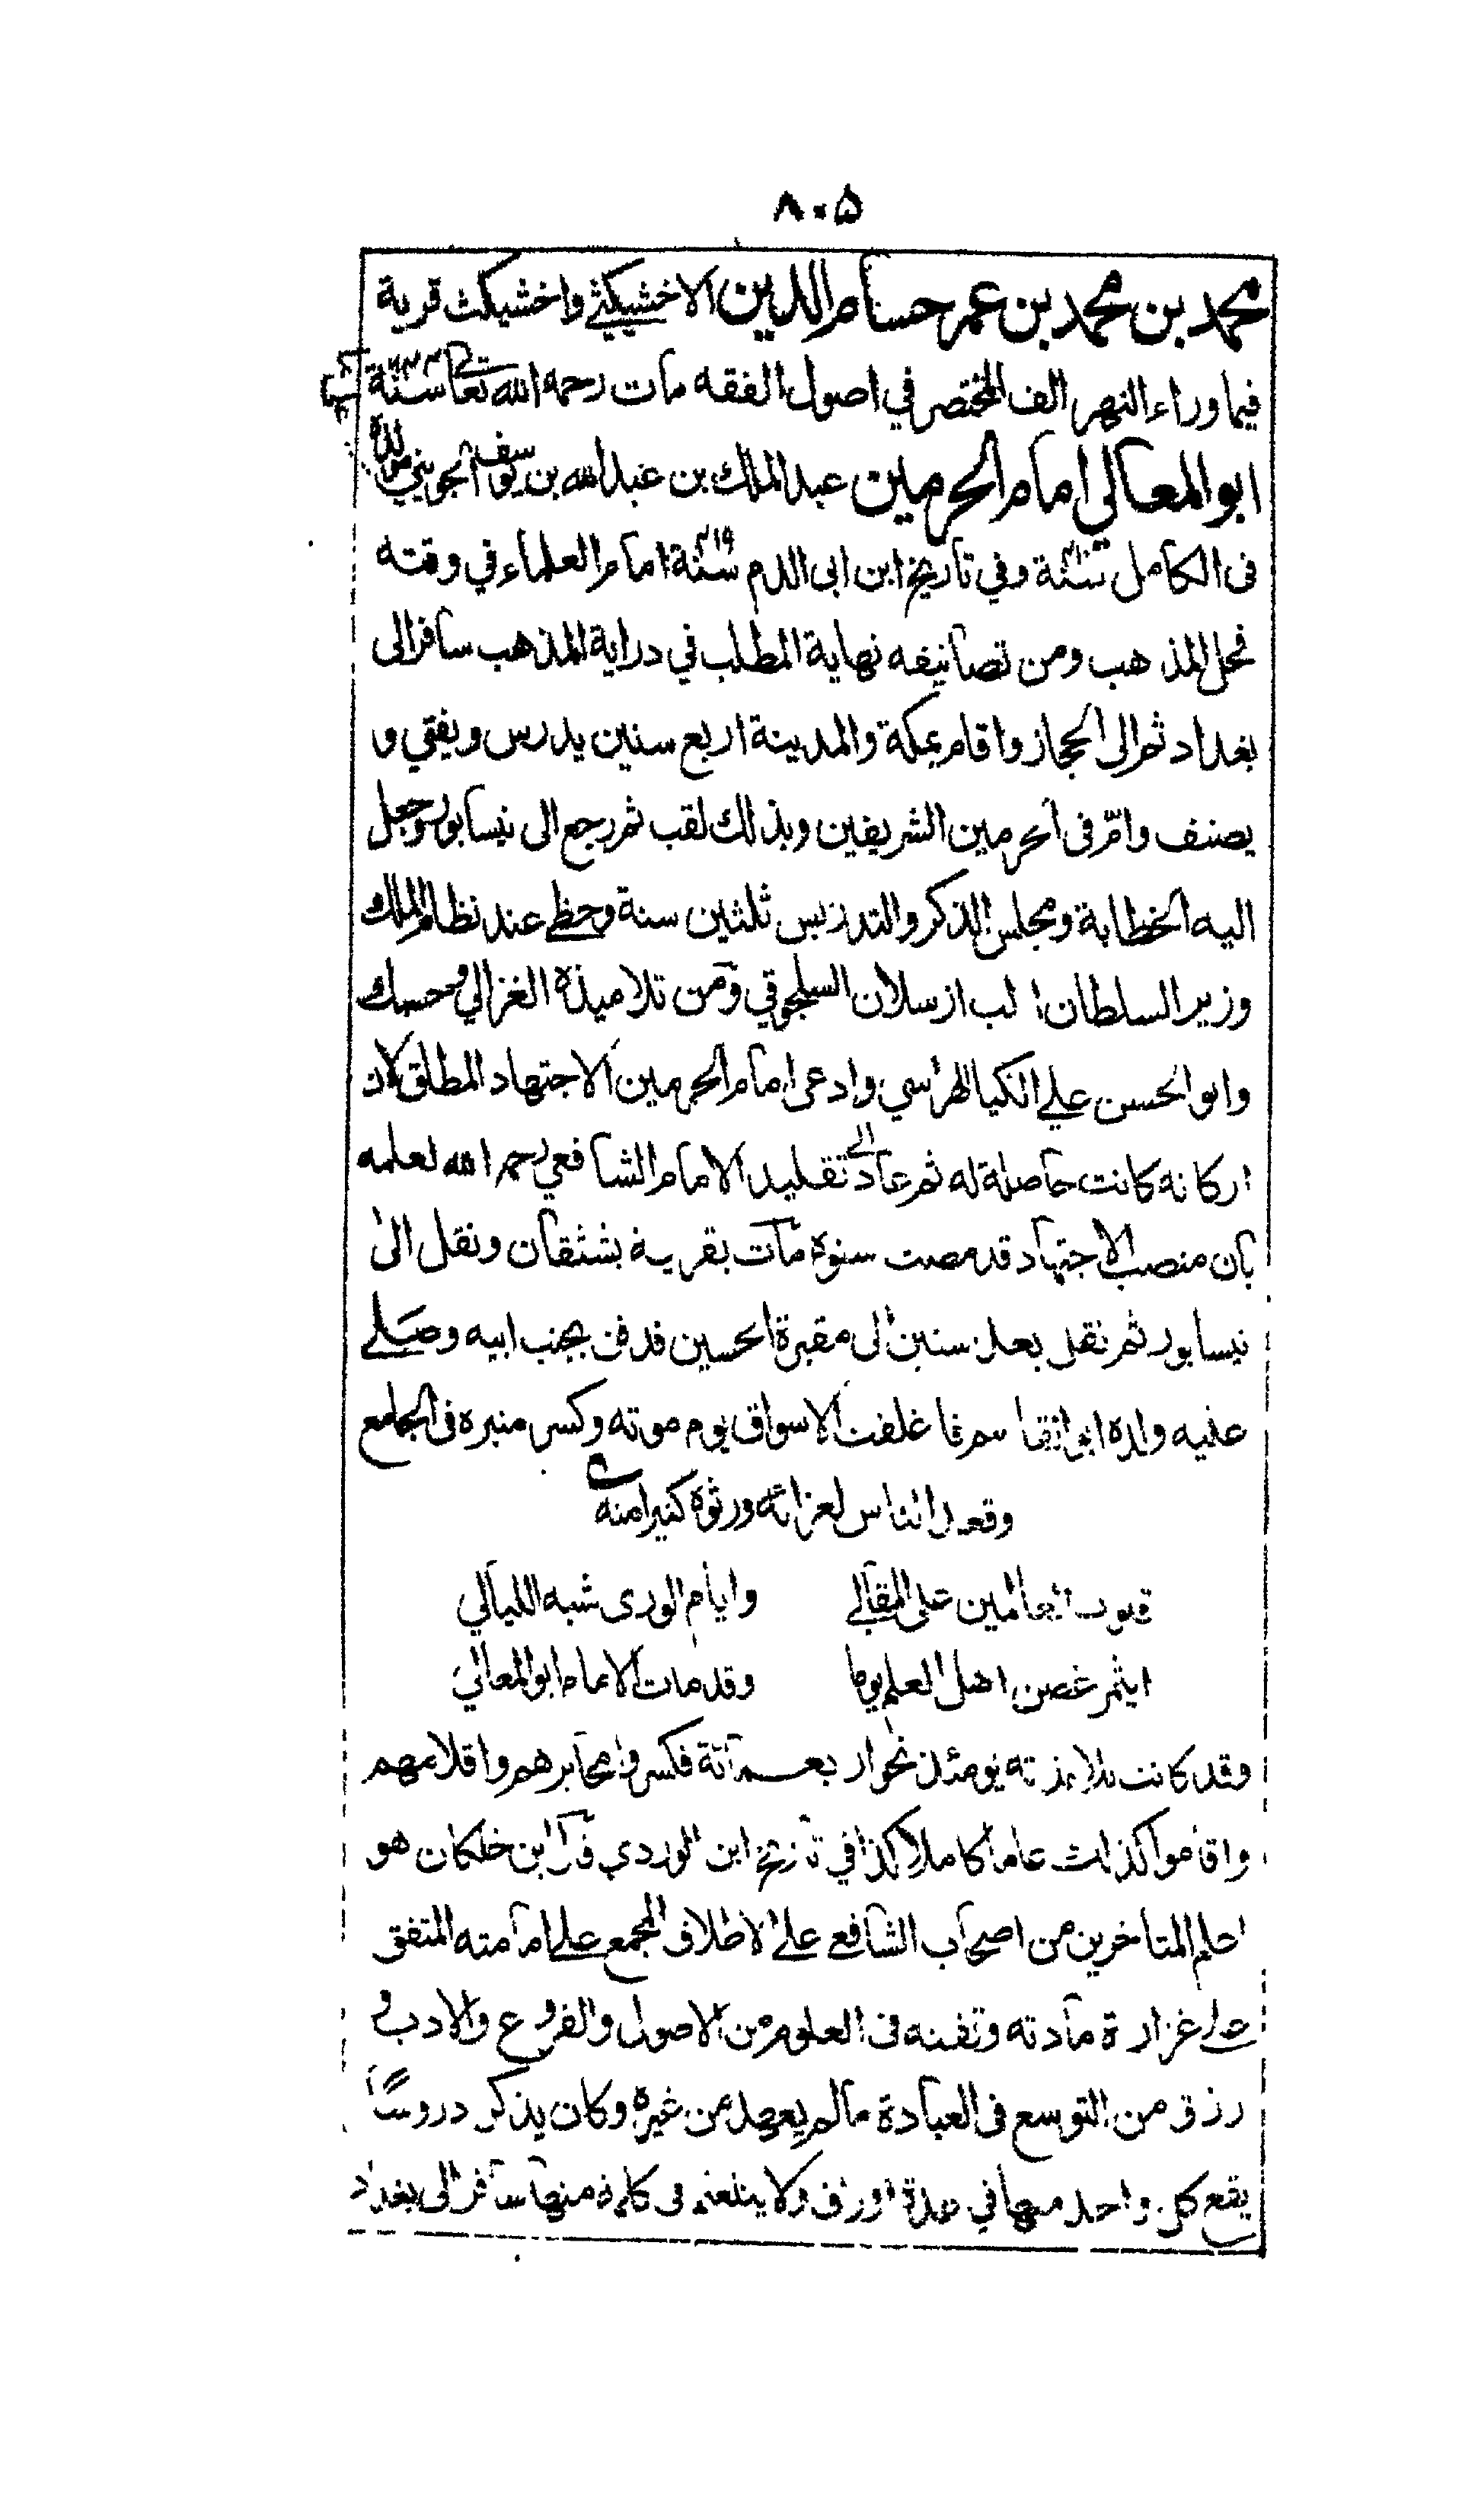 ٨٠٥
محمد بن محمد بن عمر حسام الدين الاخشيكثي واخشيكث قرية
فيما وراء النهر الف المختصر في اصول الفقه مات رحمه الله تعالى سنة
ابو المعالي امام الحرمين عبد الملك بن عبد الله بن يوسف الجويني مولده
فى الكامل سنة وفي تاريخ ابن ابى الدم سنة امام العلماء في وقته
فحل المذهب ومن تصانيفه نهاية المطلب في دراية المذهب سافر الى
بغداد ثم الى الحجاز واقام بمكة والمدينة اربع سنين يدرس ويفتي و
يصنف وامّ فى الحرمين الشريفين وبذلك لقب ثم رجع الى نيسابور وجعل
اليه الخطابة ومجلس الذكر والتدريس ثلثين سنة وحظي عند نظام الملك
وزير السلطان الب ارسلان السلجوقي ومن تلاميذه الغزالي وحسبك
وابو الحسن علي الكيا الهراسي وادعى امام الحرمين الاجتهاد المطلق لان
اركانه كانت حاصلة له ثم عاد الى تقليد الامام الشافعي رحمه الله لعلمه
بان منصب الاجتهاد قد مضت سنوه مات بقرية بشتقان ونقل الى
نيسابور ثم نقل بعد سنين الى مقبرة الحسين فدفن بجنب ابيه وصلى
عليه ولده ابو القاسم فاغلقت الاسواق يوم موته وكسر منبره فى الجامع
وقعد الناس لعزائه ورثوه كثيرا منه
قلوب العالمين على المقالي وايام الورى شبه الليالي
ايثمر غصن اهل العلم يوما وقد مات الامام ابو المعالي
وقد كانت تلامذته يومئذ نحو اربعمائة فكسروا محابرهم واقلامهم
واقاموا كذلك عاما كاملا كذا في تاريخ ابن الوردي قال ابن خلكان هو
اعلم المتأخرين من اصحاب الشافعي على الاطلاق المجمع على امامته المتفق
على غزارة مادته وتفننه فى العلوم من الاصول والفروع والادب و
رزق من التوسع فى العبادة مالم يعهد من غيره وكان يذكر دروسًا
يقع كل واحد منها في عدة اوراق ولا يتلعثم فى كلمة منها سافر الى بغداد